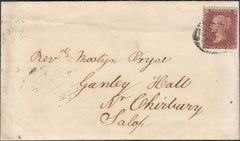 Revd. Mostyn Pryce
Gunley Hall
Nr Chirbury
Salop